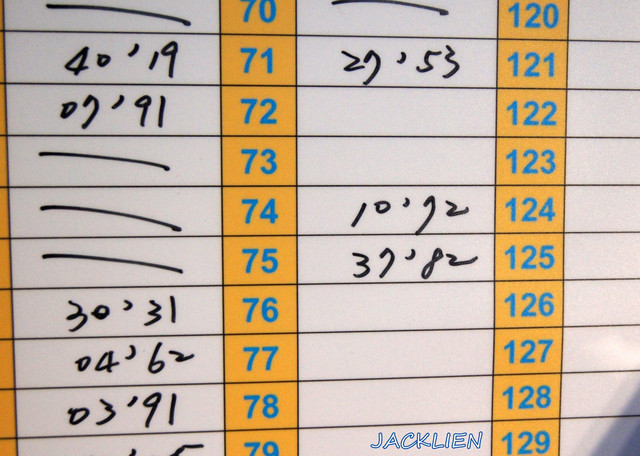 70 120
40'19 71 27'53 121
07'91 72 122
73 123
74 10'72 124
75 37'82 125
30'31 76 126
04'62 77 127
03'91 78 128
79 129
JACKLIEN